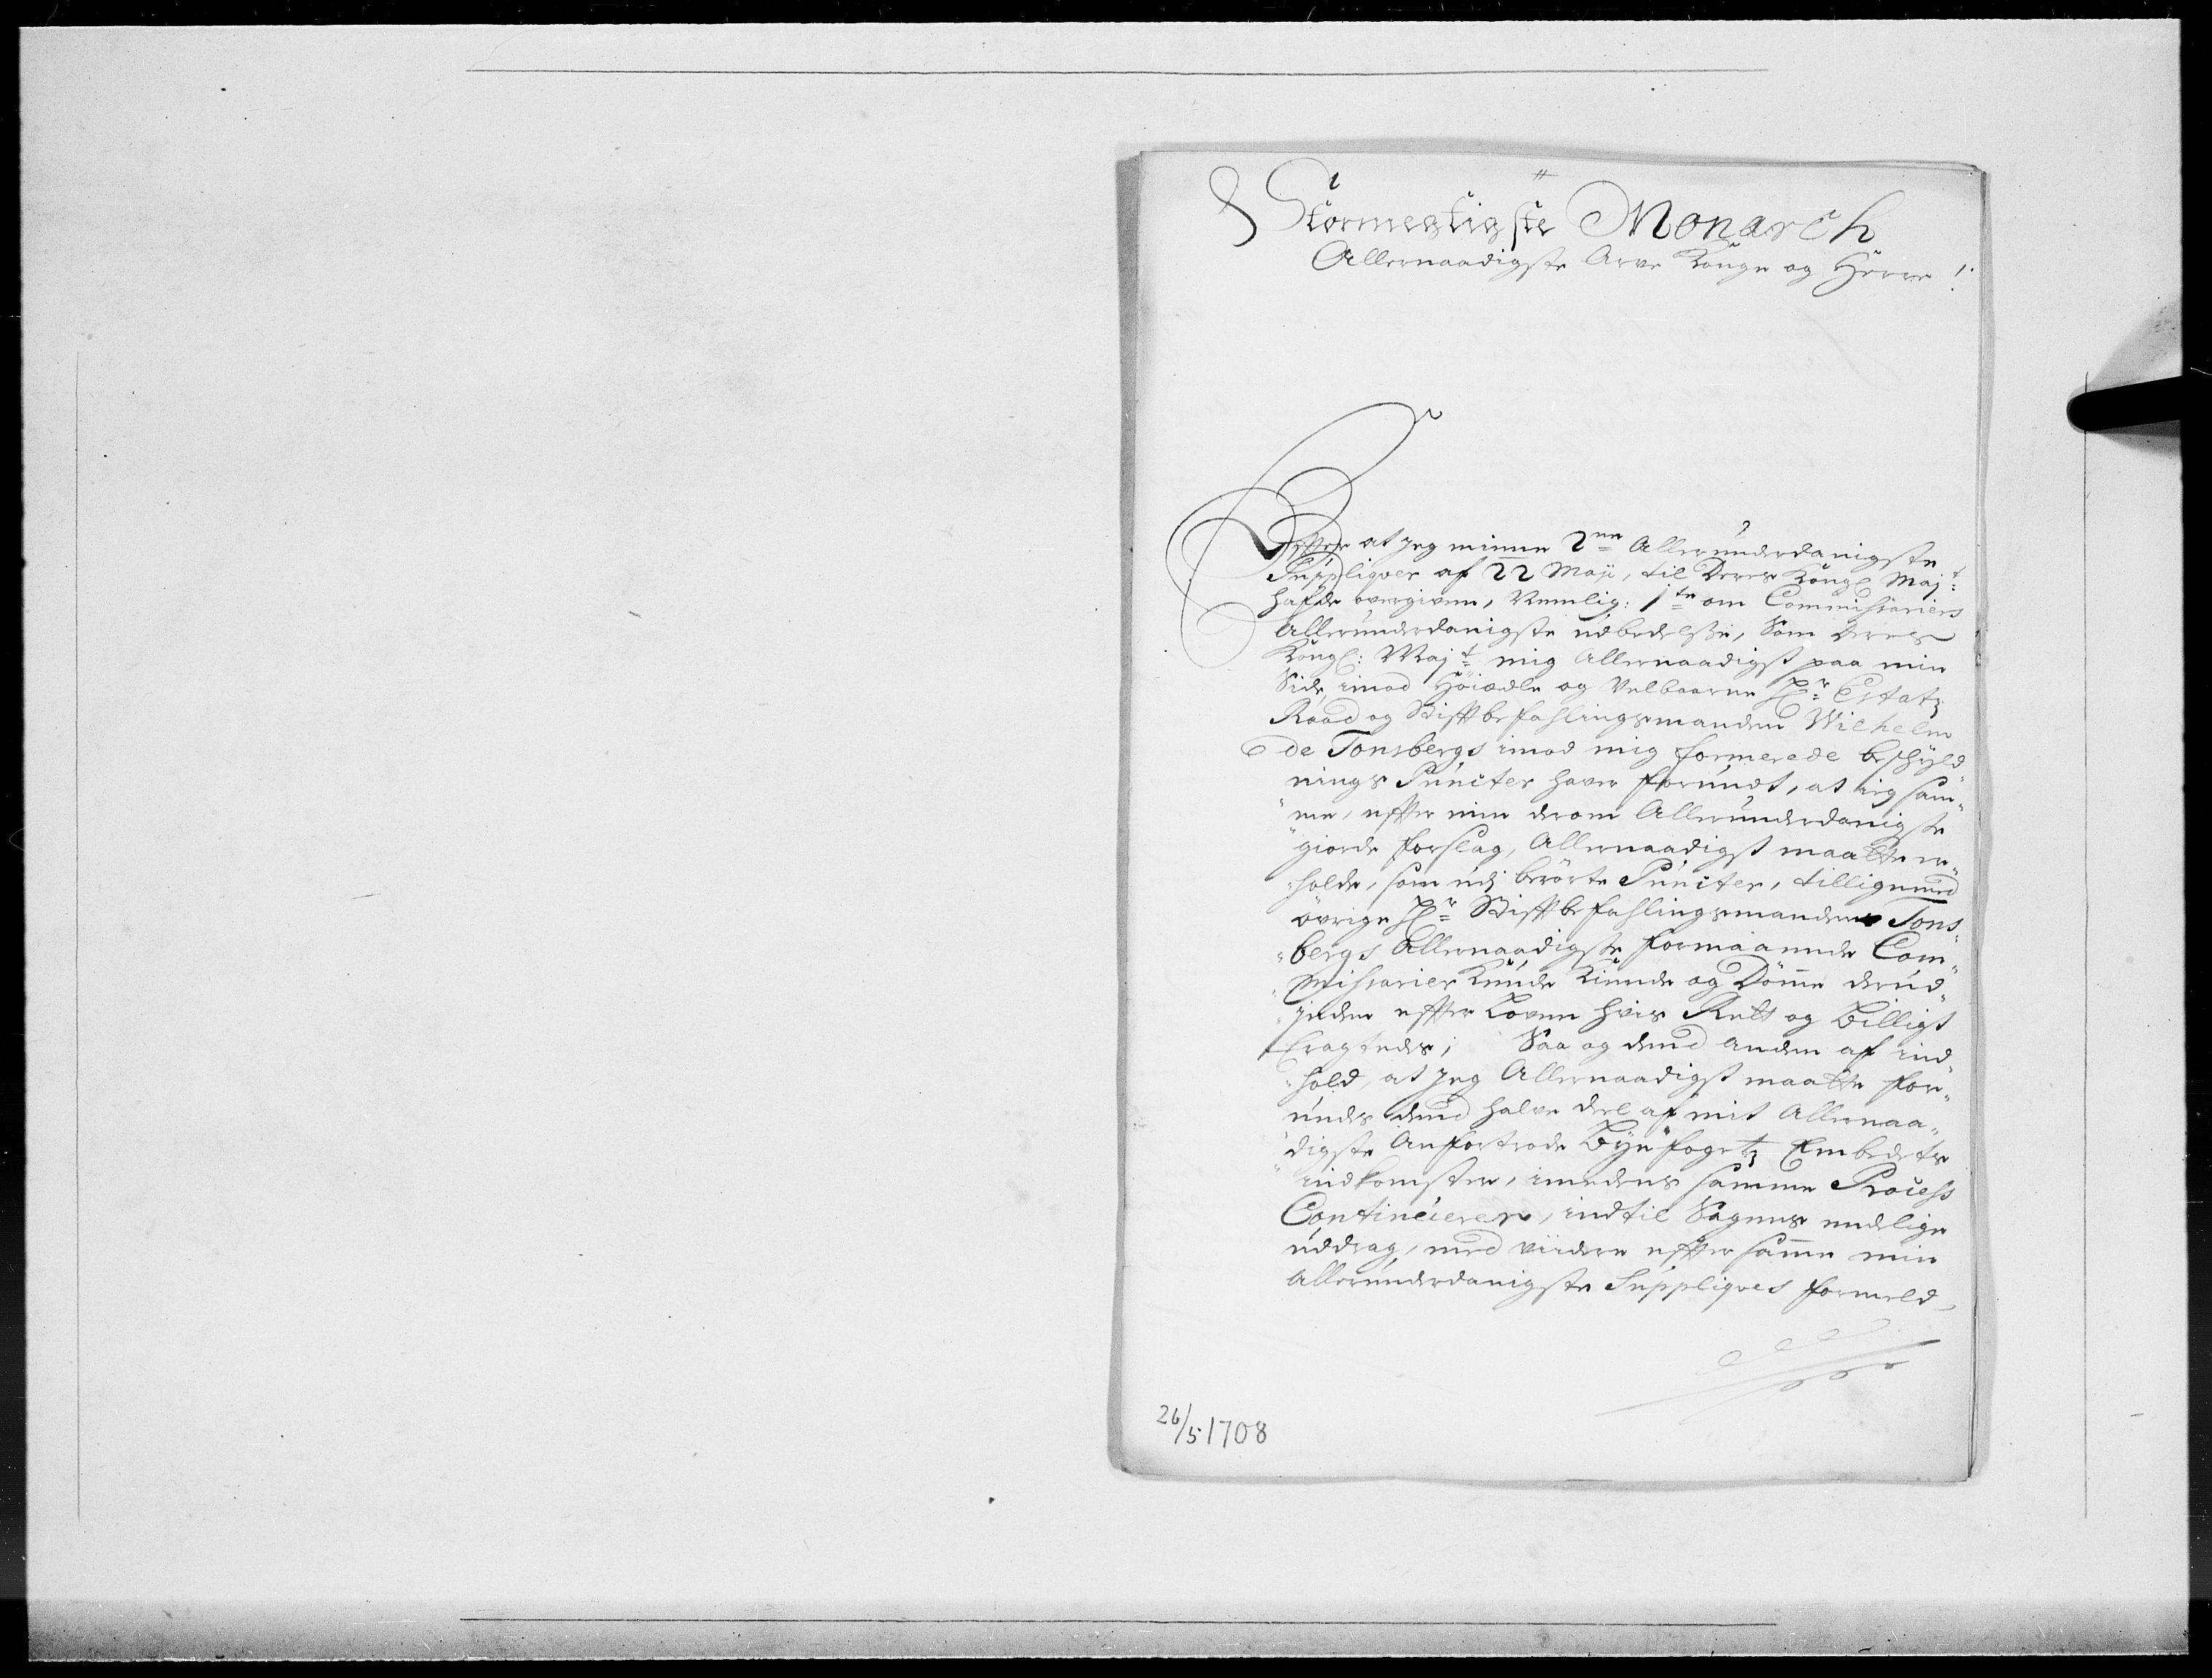 Stormegtigste Monarch
Allernaadigste Arve Konge og Herre!
Effter at jeg minne 2nne Allerunderdanigste
Suppliqver af 22 Maji, til Deres Kongl Majt
hafde overgiven, Nemlig: 1te om Commissariers
Allerunderdanigste udbedelsse, Som Deres
Kongl: Majt mig Allernaadigst paa min
Side, imod Höiædle og Velbaarne Hr Estatz
Raad og Stiftbefahlingsmanden Wilhelm
de Tonsbergs imod mig formerede beschyld
nings Puncter haver forundt, at jeg sam-
me, effter min derom Allerunderdanigste
giorde forslag, Allernaadigst maatte er-
holde, som udj berörte Puncter, tilligemed
övrige Hr Stiftbefahlingsmandens Tons-
bergs Allernaadigste formaaende Com-
missarier Kunde Kiende og Dömme derud-
inden effter Loven hvis Rett og Billigt
Eragtedes; Saa og dend anden af ind-
hold, at jeg Allernaadigst maatte for-
undes dend halve deel af mit Allernaa-
digste Anfortrode Bÿe fogetz Embedets
indkomster, imedens samme Process
Continuerer, indtil Sagens endelige
uddrag, med viidere effter samme min
Allerunderdanigste Suppliqves formeld,
26/5 1708